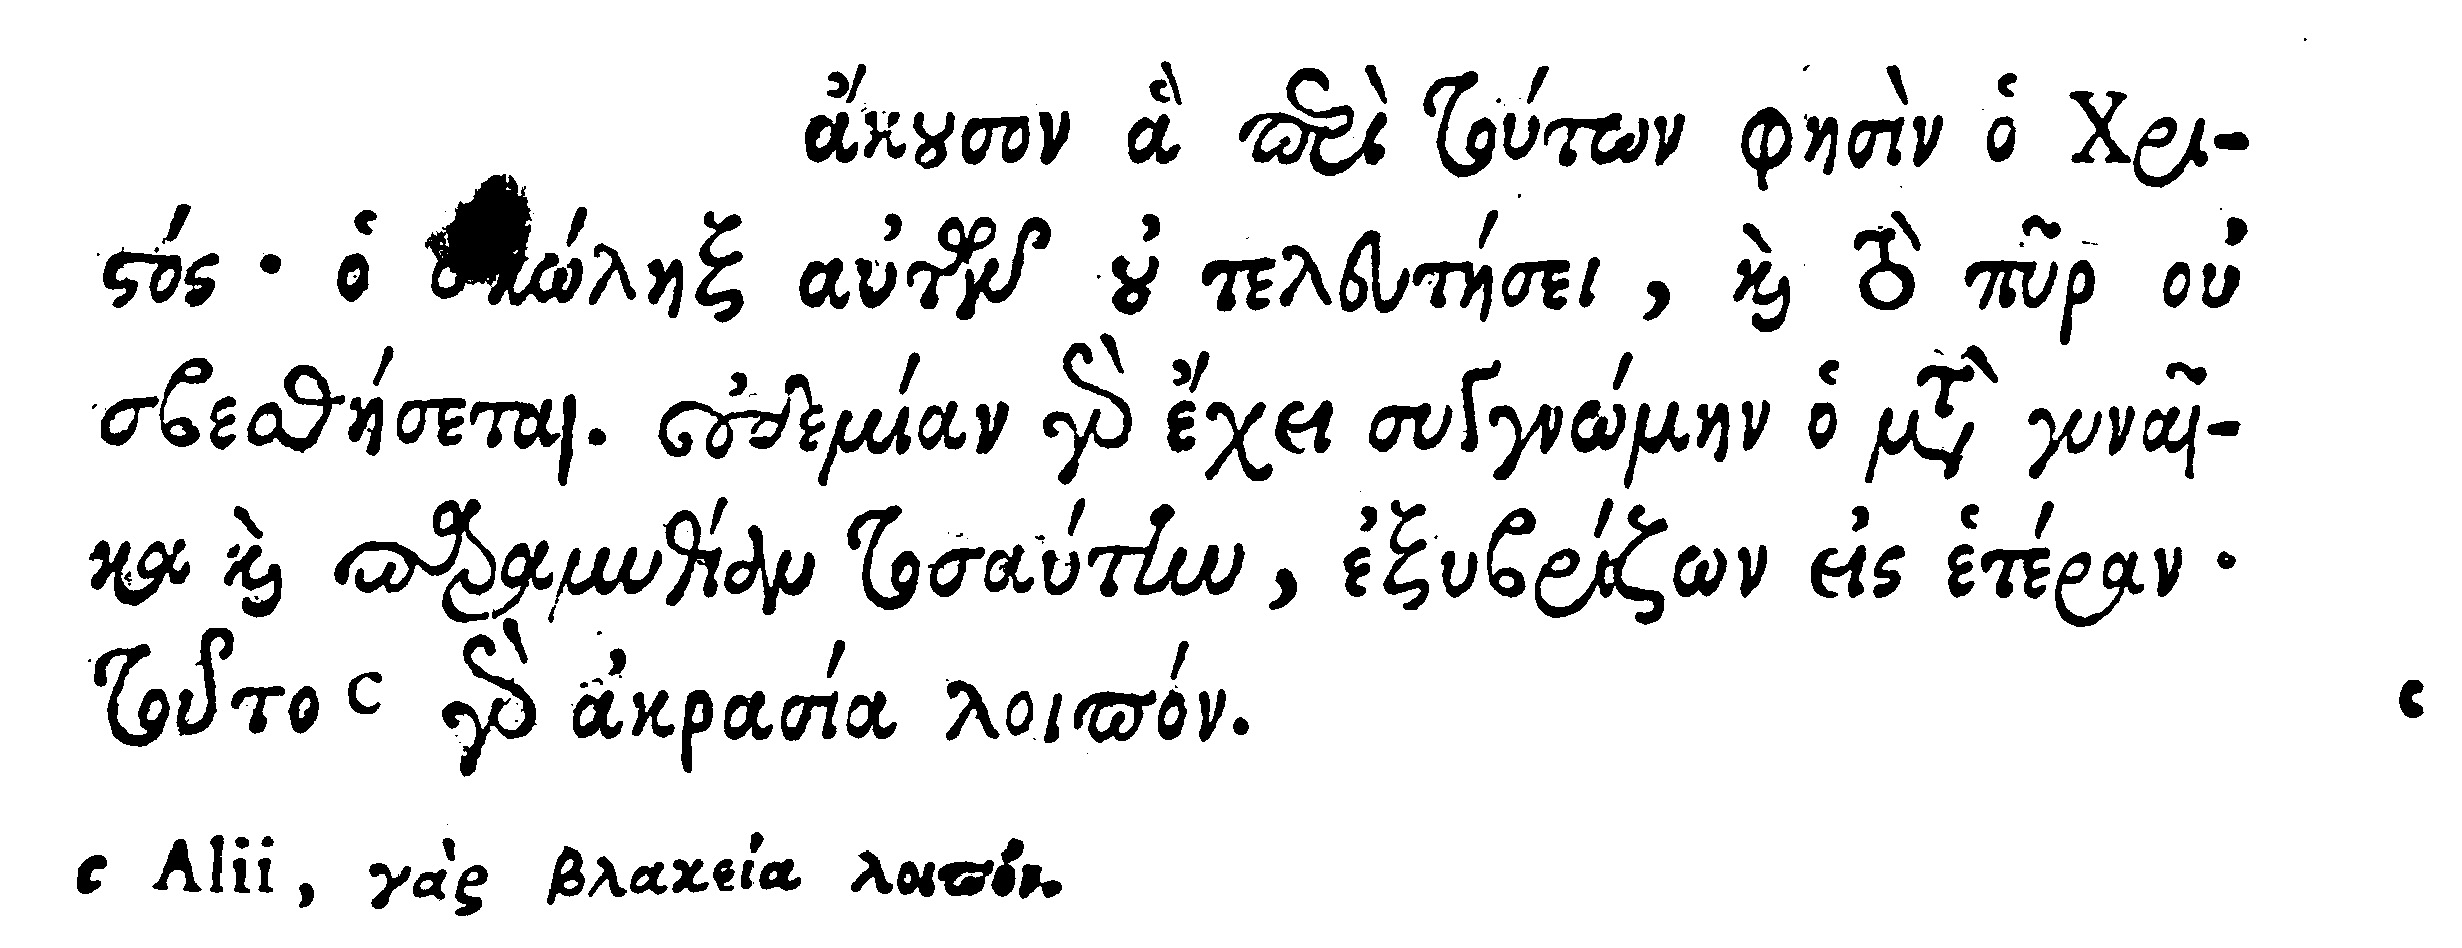 ἄκουσον ἃ περὶ τούτων φησὶν ὁ Χρι-
στός · ὁ σκώληξ αὐτῶν οὐ τελευτήσει, καὶ τὸ πῦρ οὐ
σβεσθήσεται. οὐδεμίαν γὰρ ἔχει συγγνώμην ὁ μετὰ γυναῖ-
κα καὶ παραμυθίαν τοσαύτην, ἐξυβρίζων εἰς ἑτέραν ·
τοῦτο c γὰρ ἀκρασία λοιπόν. c
c Alii, γὰρ βλακεία λοιπόν.